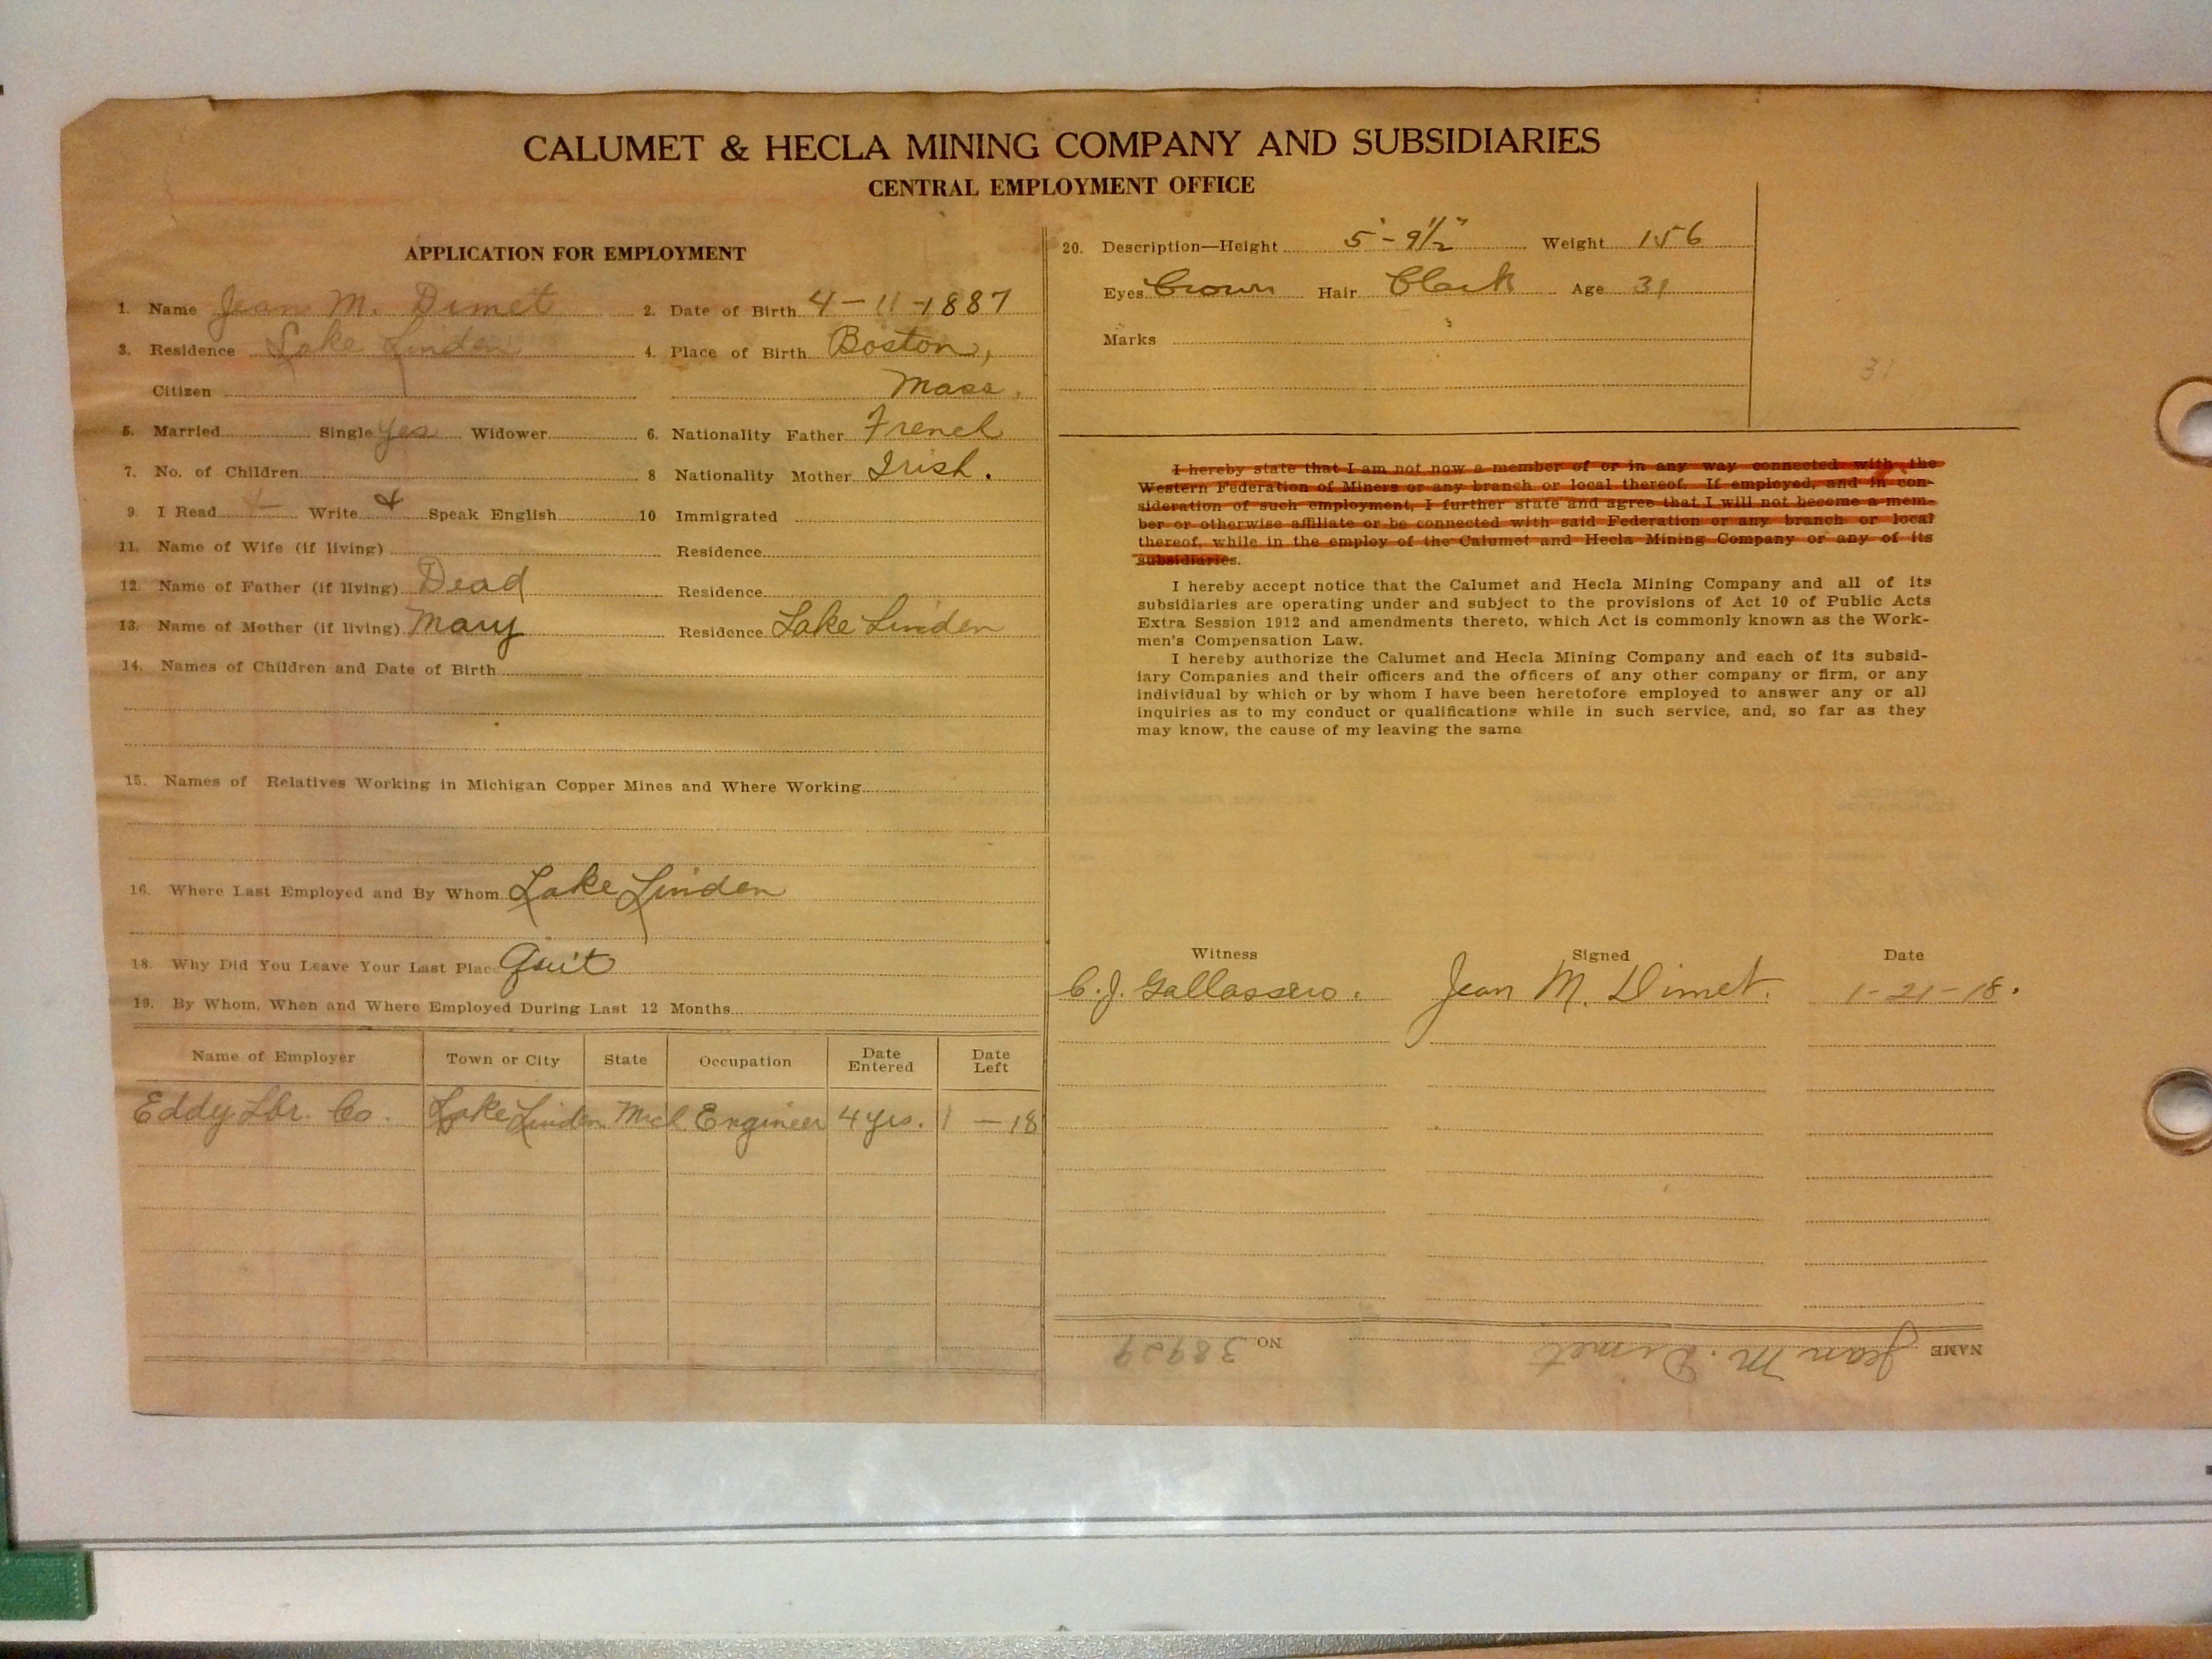 CALUMET & HECLA MINING COMPANY AND SUBSIDIARIES
CENTRAL EMPLOYMENT OFFICE
APPLICATION FOR EMPLOYMENT
1. Name Jean M. Dimet 2. Date of Birth 4-11-1887
3. Residence Lake Linden 4. Place of Birth Boston,
Citizen Mass.
5. Married Single Yes Widower 6. Nationality Father French
7. No. of Children 8 Nationality Mother Irish.
9. I Read + Write + Speak English 10 Immigrated
11. Name of Wife (if living) Residence
12. Name of Father (if living) Dead Residence
13. Name of Mother (if living) Mary Residence Lake Linden
14. Names of Children and Date of Birth
15. Names of Relatives Working in Michigan Copper Mines and Where Working
16. Where Last Employed and By Whom Lake Linden
18. Why Did You Leave Your Last Place Quit
19. By Whom, When and Where Employed During Last 12 Months
Name of Employer Town or City State Occupation Date Entered Date Left
Eddy Lbr. Co. Lake Linden Mich Engineer 4 yrs. 1 - 18
20. Description—Height 5'-9 1/2" Weight 156
Eyes Brown Hair Black Age 31
Marks
31
I hereby state that I am not now a member of or in any way connected with the
Western Federation of Miners or any branch or local thereof. If employed, and in con-
sideration of such employment, I further state and agree that I will not become a mem-
ber or otherwise affiliate or be connected with said Federation or any branch or local
thereof, while in the employ of the Calumet and Hecla Mining Company or any of its
subsidiaries.
I hereby accept notice that the Calumet and Hecla Mining Company and all of its
subsidiaries are operating under and subject to the provisions of Act 10 of Public Acts
Extra Session 1912 and amendments thereto, which Act is commonly known as the Work-
men's Compensation Law.
I hereby authorize the Calumet and Hecla Mining Company and each of its subsid-
iary Companies and their officers and the officers of any other company or firm, or any
individual by which or by whom I have been heretofore employed to answer any or all
inquiries as to my conduct or qualifications while in such service, and, so far as they
may know, the cause of my leaving the same
Witness Signed Date
C. J. Gallassero. Jean M. Dimet. 1-21-18.
NAME Jean M. Dimet NO 38929